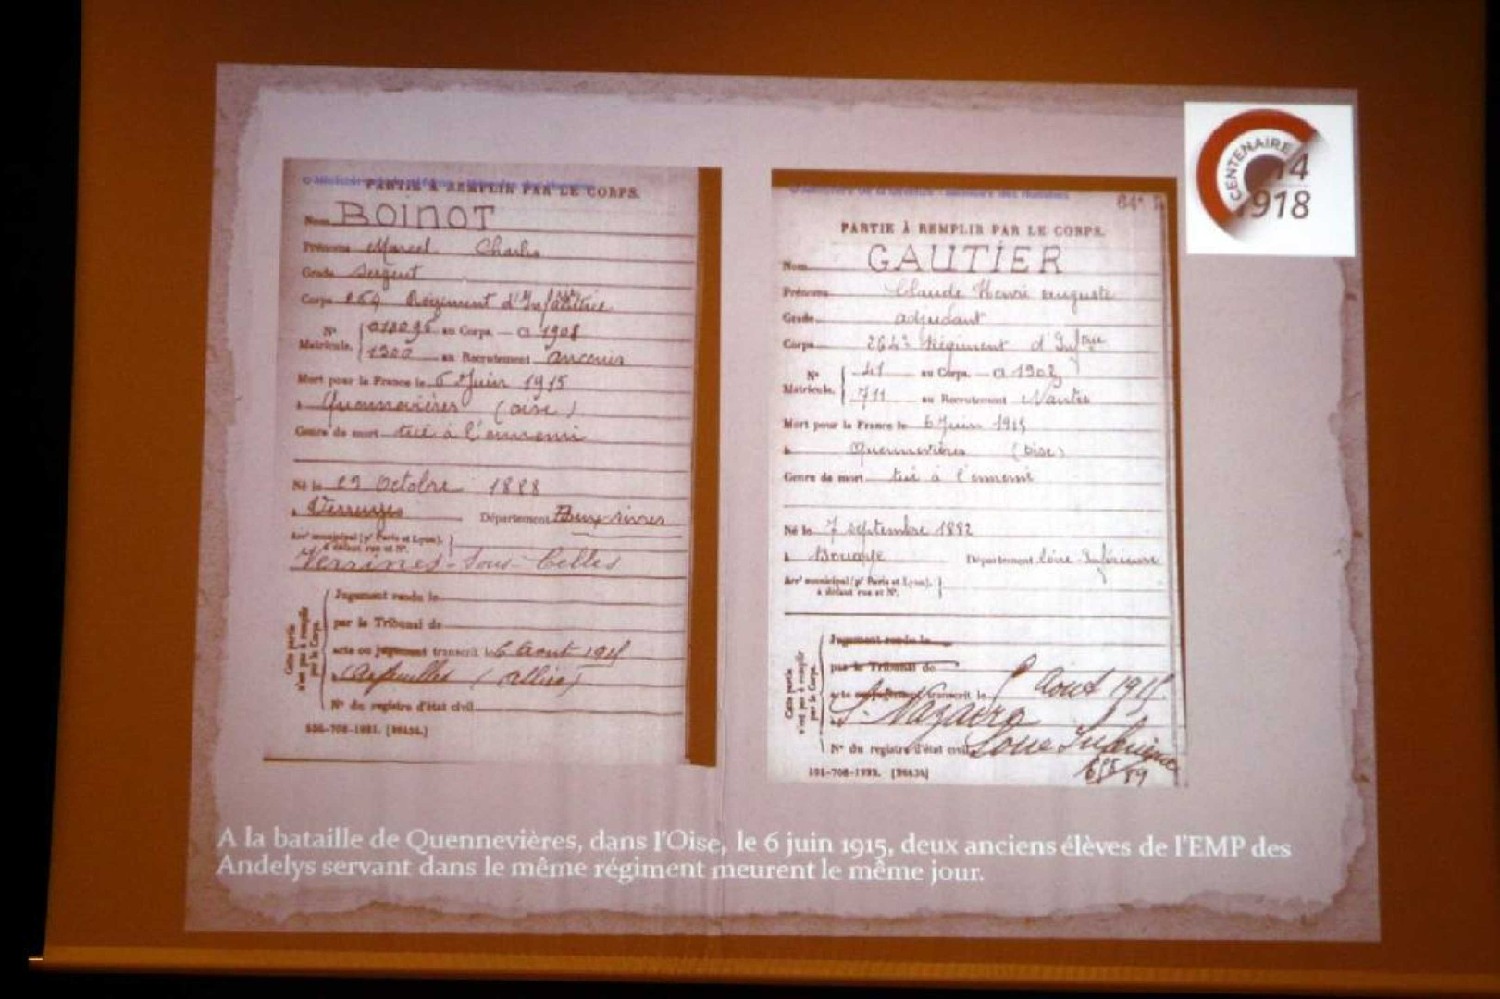 PARTIE À REMPLIR PAR LE CORPS.
Nom BOINOT
Prénoms Marcel Charles
Grade Sergent
Corps 264 Régiment d'Infanterie
Nº Matricule. au Corps. — Cl 1908
1300 au Recrutement Ancenis
Mort pour la France le 6 Juin 1915
à Quennevières (Oise)
Genre de mort tué à l'ennemi
Né le Octobre 1888
à Verruyes Département Deux-Sèvres
Arrt municipal (pr Paris et Lyon), à défaut rue et Nº.
Verrines-Sous-Celles
Cette partie n'est pas à remplir par le Corps.
Jugement rendu le
par le Tribunal de
acte ou jugement transcrit le 6 Août 1915
à (Allier)
Nº du registre d'état civil
PARTIE À REMPLIR PAR LE CORPS.
Nom GAUTIER
Prénoms Claude Henri auguste
Grade adjudant
Corps 264e Régiment d'Infrie
Nº Matricule. 41 au Corps. Cl 1902
711 au Recrutement Nantes
Mort pour la France le 6 Juin 1915
à Quennevières (Oise)
Genre de mort tué à l'ennemi
Né le 7 septembre 1882
à Bouaye Département Loire Inférieure
Arrt municipal (pr Paris et Lyon), à défaut rue et Nº.
Cette partie n'est pas à remplir par le Corps.
Jugement rendu le
par le Tribunal de
acte ou jugement transcrit le Août 1915
à St Nazaire
Nº du registre d'état civil Loire Inférieure
CENTENAIRE
14
1918
A la bataille de Quennevières, dans l'Oise, le 6 juin 1915, deux anciens élèves de l'EMP des
Andelys servant dans le même régiment meurent le même jour.